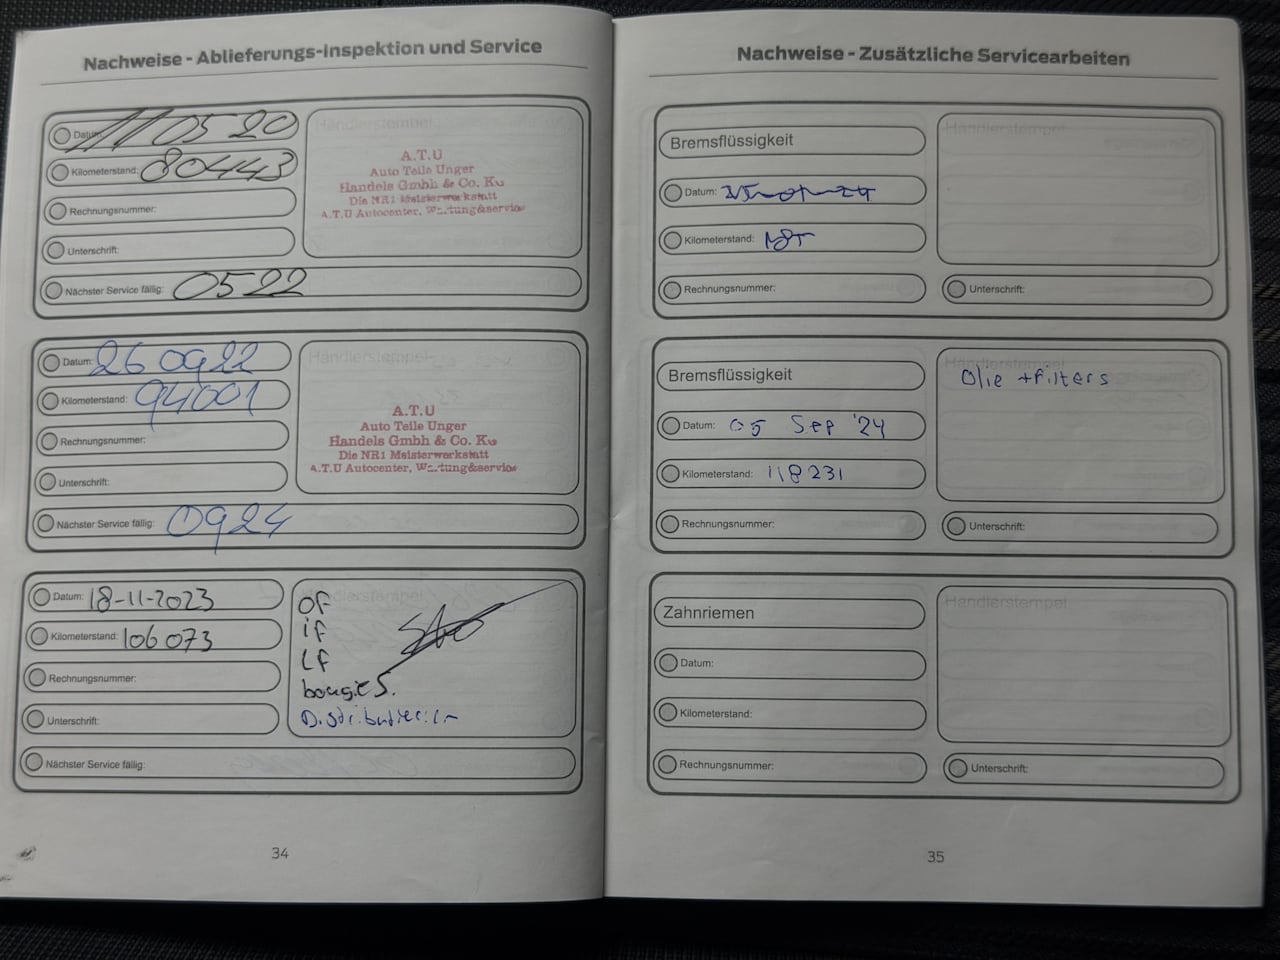 Nachweise - Ablieferungs-Inspektion und Service
Datum: 11 05 20
Kilometerstand: 80443
Rechnungsnummer:
Unterschrift:
Nächster Service fällig: 0522
Händlerstempel
A.T.U
Auto Teile Unger
Handels Gmbh & Co. Ks
Die NR1 Meisterwerkstatt
A.T.U Autocenter, Wartung&service
Datum: 260922
Kilometerstand: 94001
Rechnungsnummer:
Unterschrift:
Nächster Service fällig: 0924
Händlerstempel
A.T.U
Auto Teile Unger
Handels Gmbh & Co. Ks
Die NR1 Meisterwerkstatt
A.T.U Autocenter, Wartung&service
Datum: 18-11-2023
Kilometerstand: 106073
Rechnungsnummer:
Unterschrift:
Nächster Service fällig:
Händlerstempel
OF
if
LF
bougies.
Distributieriem
34
Nachweise - Zusätzliche Servicearbeiten
Bremsflüssigkeit
Datum:
Kilometerstand:
Rechnungsnummer:
Händlerstempel
Unterschrift:
Bremsflüssigkeit
Datum: 05 Sep '24
Kilometerstand: 118231
Rechnungsnummer:
Händlerstempel
Olie + filters
Unterschrift:
Zahnriemen
Datum:
Kilometerstand:
Rechnungsnummer:
Händlerstempel
Unterschrift:
35